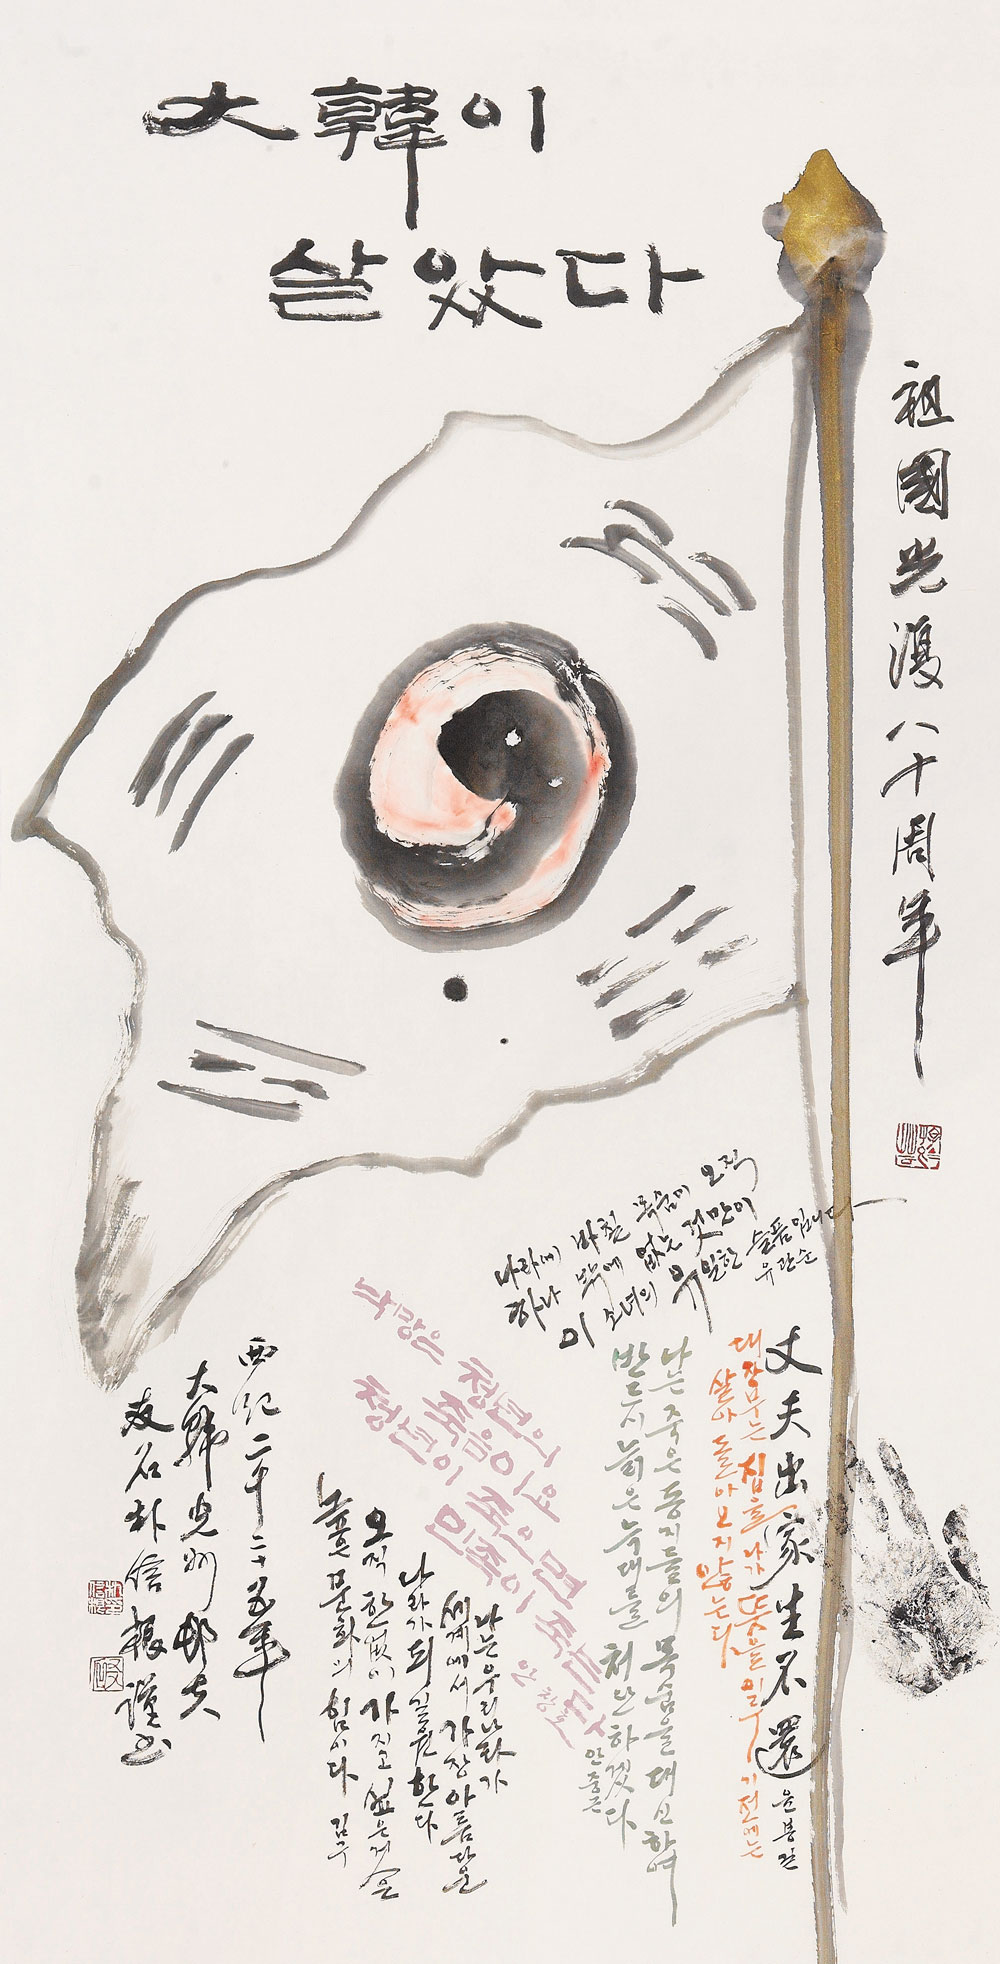 大韓이
살았다
祖國光復八十周年
나라에 바칠 목숨이 오직
하나 밖에 없는 것만이
이 소녀의 유일한 슬픔입니다
유관순
丈夫出家生不還 윤봉길
대장부는 집을 나가 뜻을 이루기 전에는
살아 돌아오지 않는다
나는 죽은 동지들의 목숨을 대신하여
반드시 늙은 늑대를 처단하겠다
안중근
낙망은 청년의
죽음이요
청년이 죽으면
민족이 죽는다
안창호
나는 우리나라가
세계에서 가장 아름다운
나라가 되길 원한다
오직 한없이 가지고 싶은 것은
높은 문화의 힘이다 김구
西紀二千二十五年
大韓光州
友石朴信根謹書